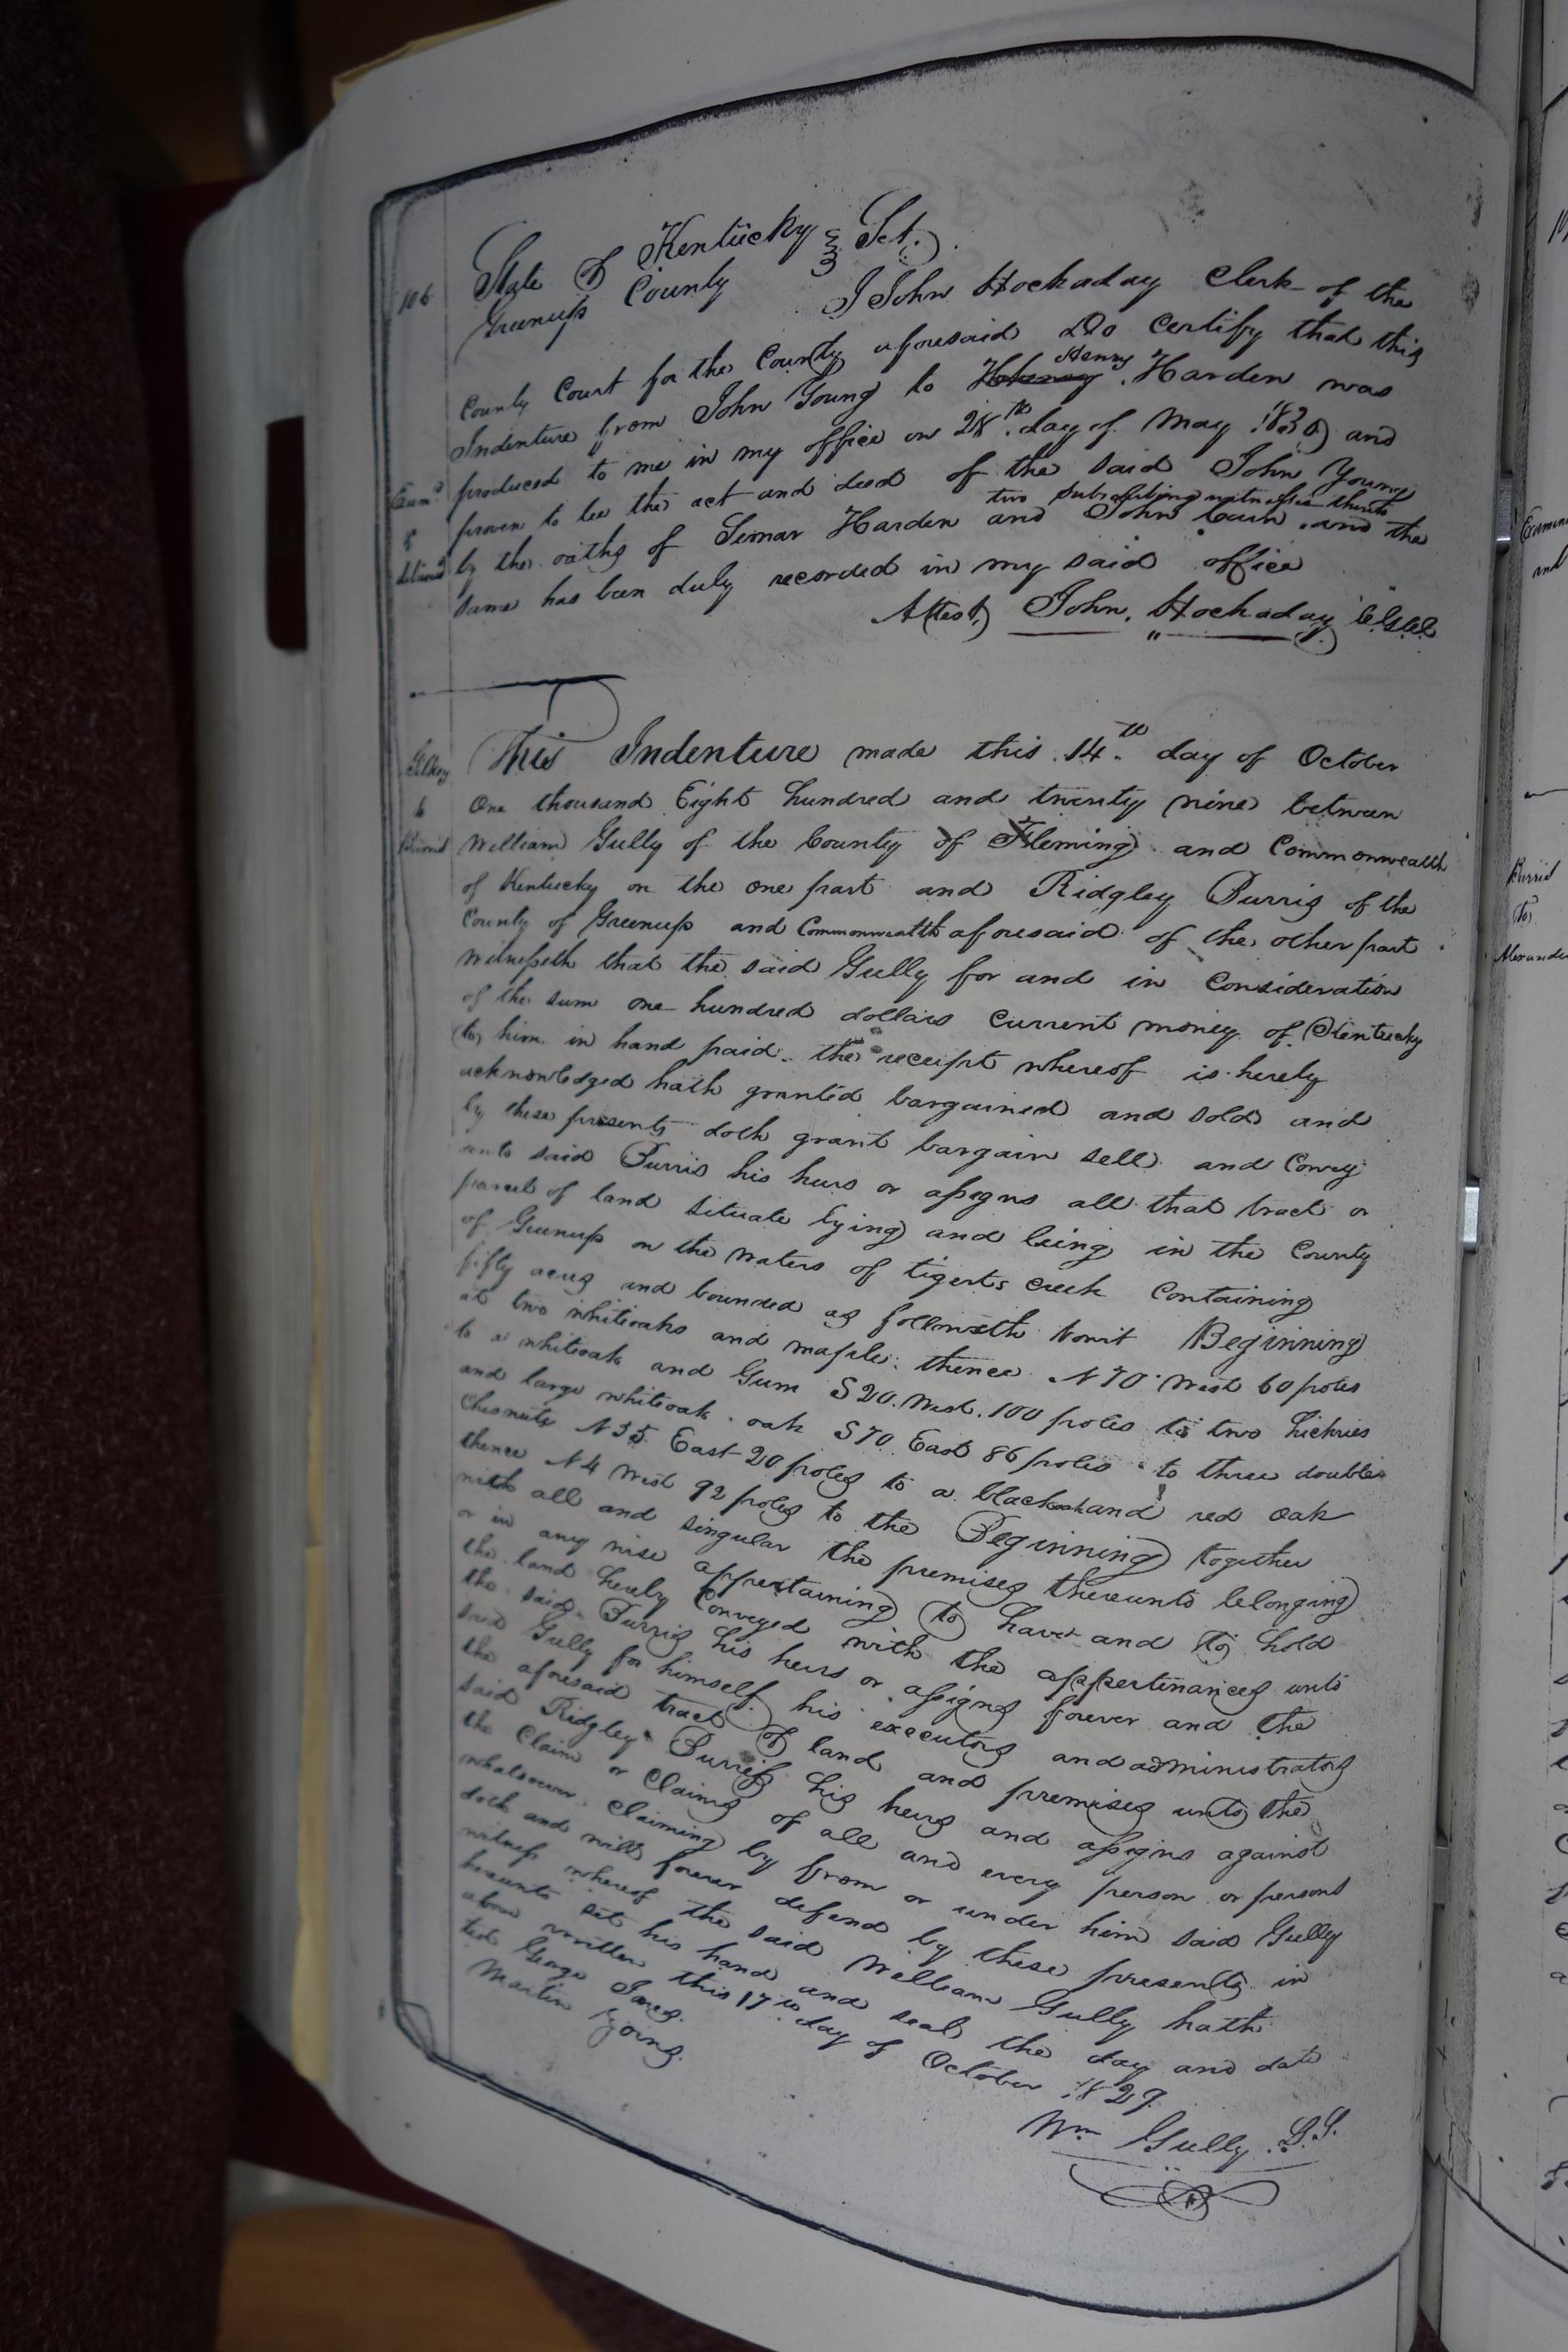 106
State of Kentucky } Sct.
Greenup County
I John Hockaday Clerk of the
County Court for the County aforesaid Do Certify that this
Indenture from John Young to Henry Harden was
produced to me in my office on 28th day of May 1830 and
proven to be the act and deed of the said John Young
by the oaths of Harden and John Cain two subscribing witnesses thereto and the
same has been duly recorded in my said office
Attest John Hockaday C.G.C.C.
Exam.d
&
This Indenture made this 14th day of October
One thousand Eight hundred and twenty nine between
William Gully of the County of Fleming and Commonwealth
of Kentucky on the one part and Ridgley Burris of the
County of Greenup and Commonwealth aforesaid of the other part
Witnesseth that the said Gully for and in Consideration
of the sum one hundred dollars Current money of Kentucky
to him in hand paid the receipt whereof is hereby
acknowledged hath granted bargained and sold and
by these presents doth grant bargain sell and Convey
unto said Burris his heirs or assigns all that tract or
parcel of land situate lying and being in the County
of Greenup on the waters of tigerts creek Containing
fifty acres and bounded as followeth towit Beginning
at two whiteoaks and maple thence N 70 West 60 poles
to a whiteoak and Gum S 20 West 100 poles to two hickries
and large whiteoak oak S 70 East 86 poles to three double
Chesnuts N 35 East 20 poles to a blackoak and red oak
thence N 4 West 92 poles to the Beginning together
with all and singular the premises thereunto belonging
or in any wise appertaining to have and to hold
the land hereby Conveyed with the appertinances unto
the said Burris his heirs or assigns forever and the
said Gully for himself his executors and administrators
the aforesaid tract of land and premises unto the
said Ridgley Burris his heirs and assigns against
the Claim or Claims of all and every person or persons
whatsoever Claiming by from or under him said Gully
doth and will forever defend by these presents in
witness whereof the said William Gully hath
hereunto set his hand and seal the day and date
above written this 17th day of October 1829
test George
Martin
Wm Gully L.S.
to
Burris
(to)